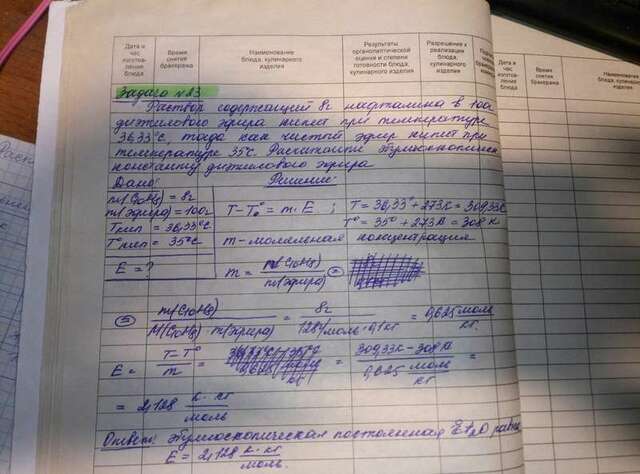 Дата и час изготовления блюда
Время снятия бракеража
Наименование блюда, кулинарного изделия
Результаты органолептической оценки и степени готовности блюда, кулинарного изделия
Разрешение к реализации блюда, кулинарного изделия
Дата и час изготовления блюда
Время снятия бракеража
Наименование блюда, кулинарного изделия
Задача №23
Раствор содержащий 8г нафталина в 100г
диэтилового эфира кипит при температуре
36,33°С, тогда как чистый эфир кипит при
температуре 35°С. Рассчитайте эбулиоскопическ
константу диэтилового эфира
Дано: Решение:
m(C10H8) = 8г
m(эфира) = 100г T-T° = m·E ; T = 36,33°+273К = 309,33К
Tкип = 36,33°С T° = 35°+273К = 308К
T°кип = 35°С m-моляльная концентрация
E = ? m = n(C10H8) / m(эфира) =
= m(C10H8) / M(C10H8)·m(эфира) = 8г / 128г/моль·0,1кг = 0,625 моль/кг.
E = T-T° / m = = 309,33К-308К / 0,625 моль/кг =
= 2,128 К·кг / моль
Ответ: эбулиоскопическая постоянная Et2O равна
E = 2,128 К·кг / моль.